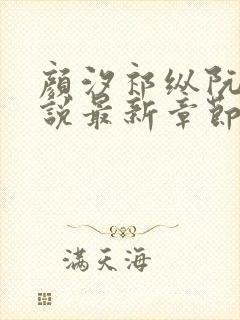 顔汐祁纵阮
說最新章節
满天海